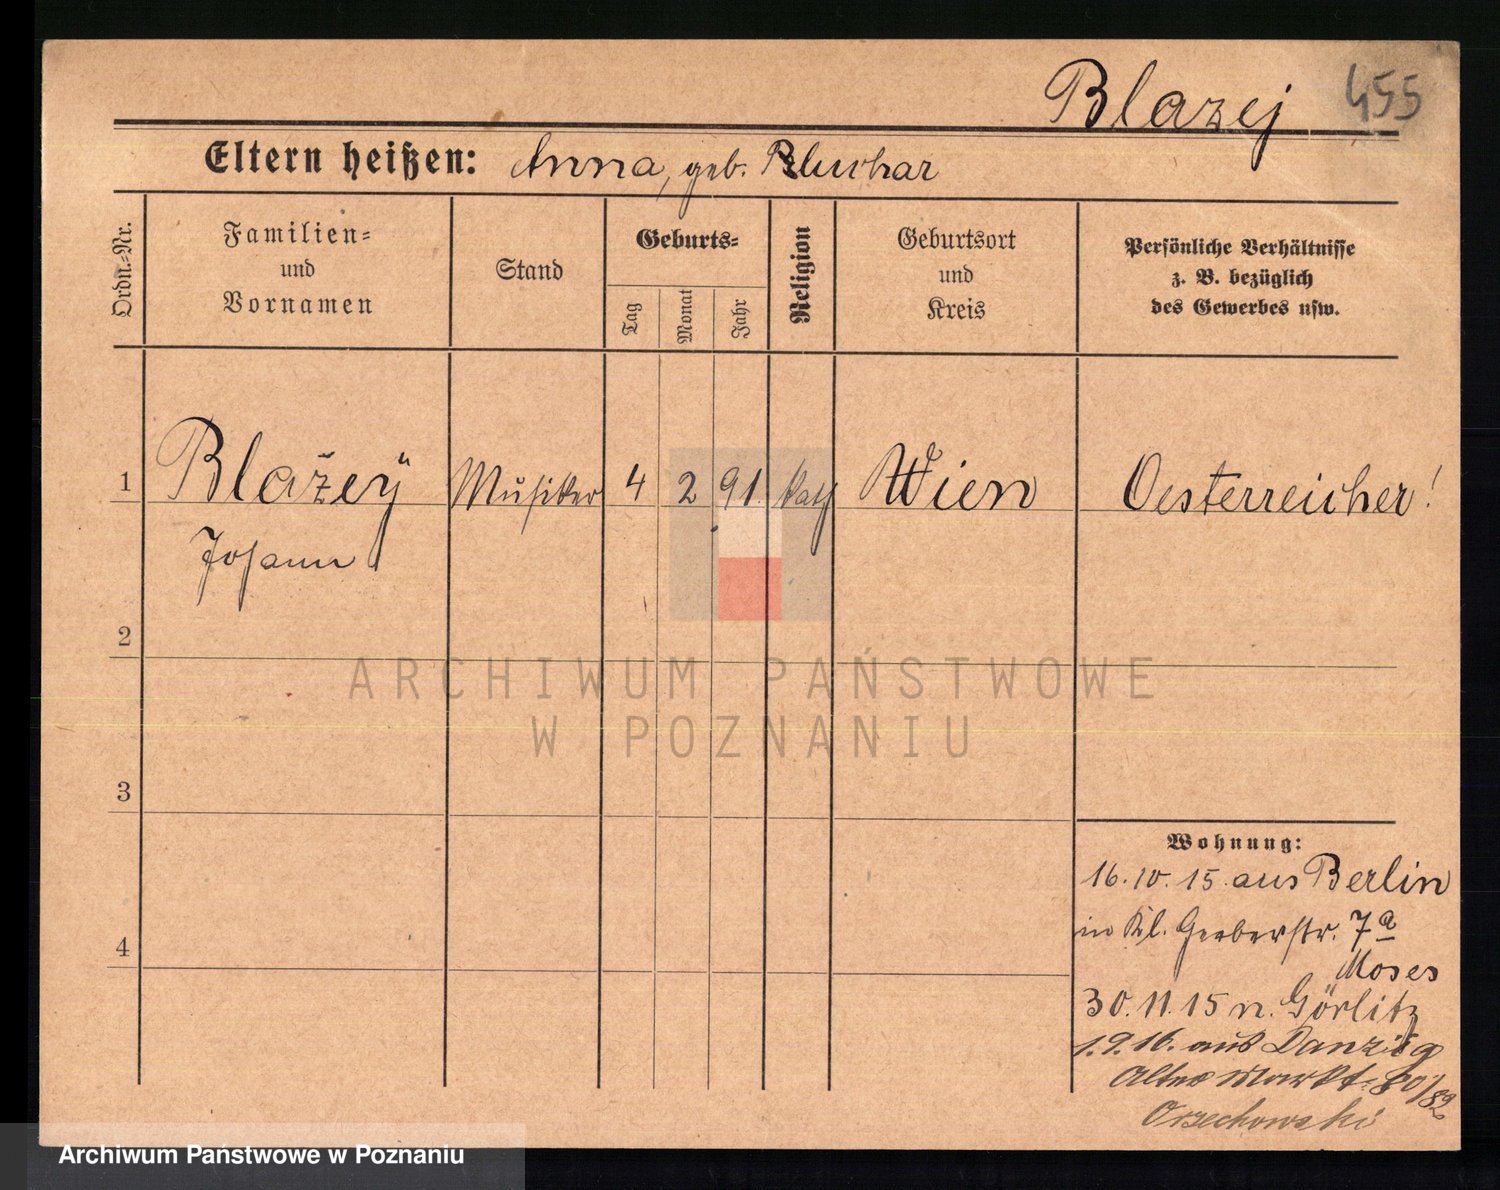 Blazej 455
Eltern heißen: Anna, geb.
Ordn.-Nr.
Familien-
und
Vornamen
Stand
Geburts-
Tag
Monat
Jahr
Religion
Geburtsort
und
Kreis
Persönliche Verhältnisse
z. B. bezüglich
des Gewerbes usw.
1 Blažey Musiker 4 2 91. kath Wien Oesterreicher!
Johann
2
3
4
Wohnung:
16.10.15 aus Berlin
in Kl. Gerberstr. 7a
Moses
30.11.15 n. Görlitz
1.9.16. aus Danzig
Alter Markt 80/82
Orzechowski
ARCHIWUM PAŃSTWOWE
W POZNANIU
Archiwum Państwowe w Poznaniu